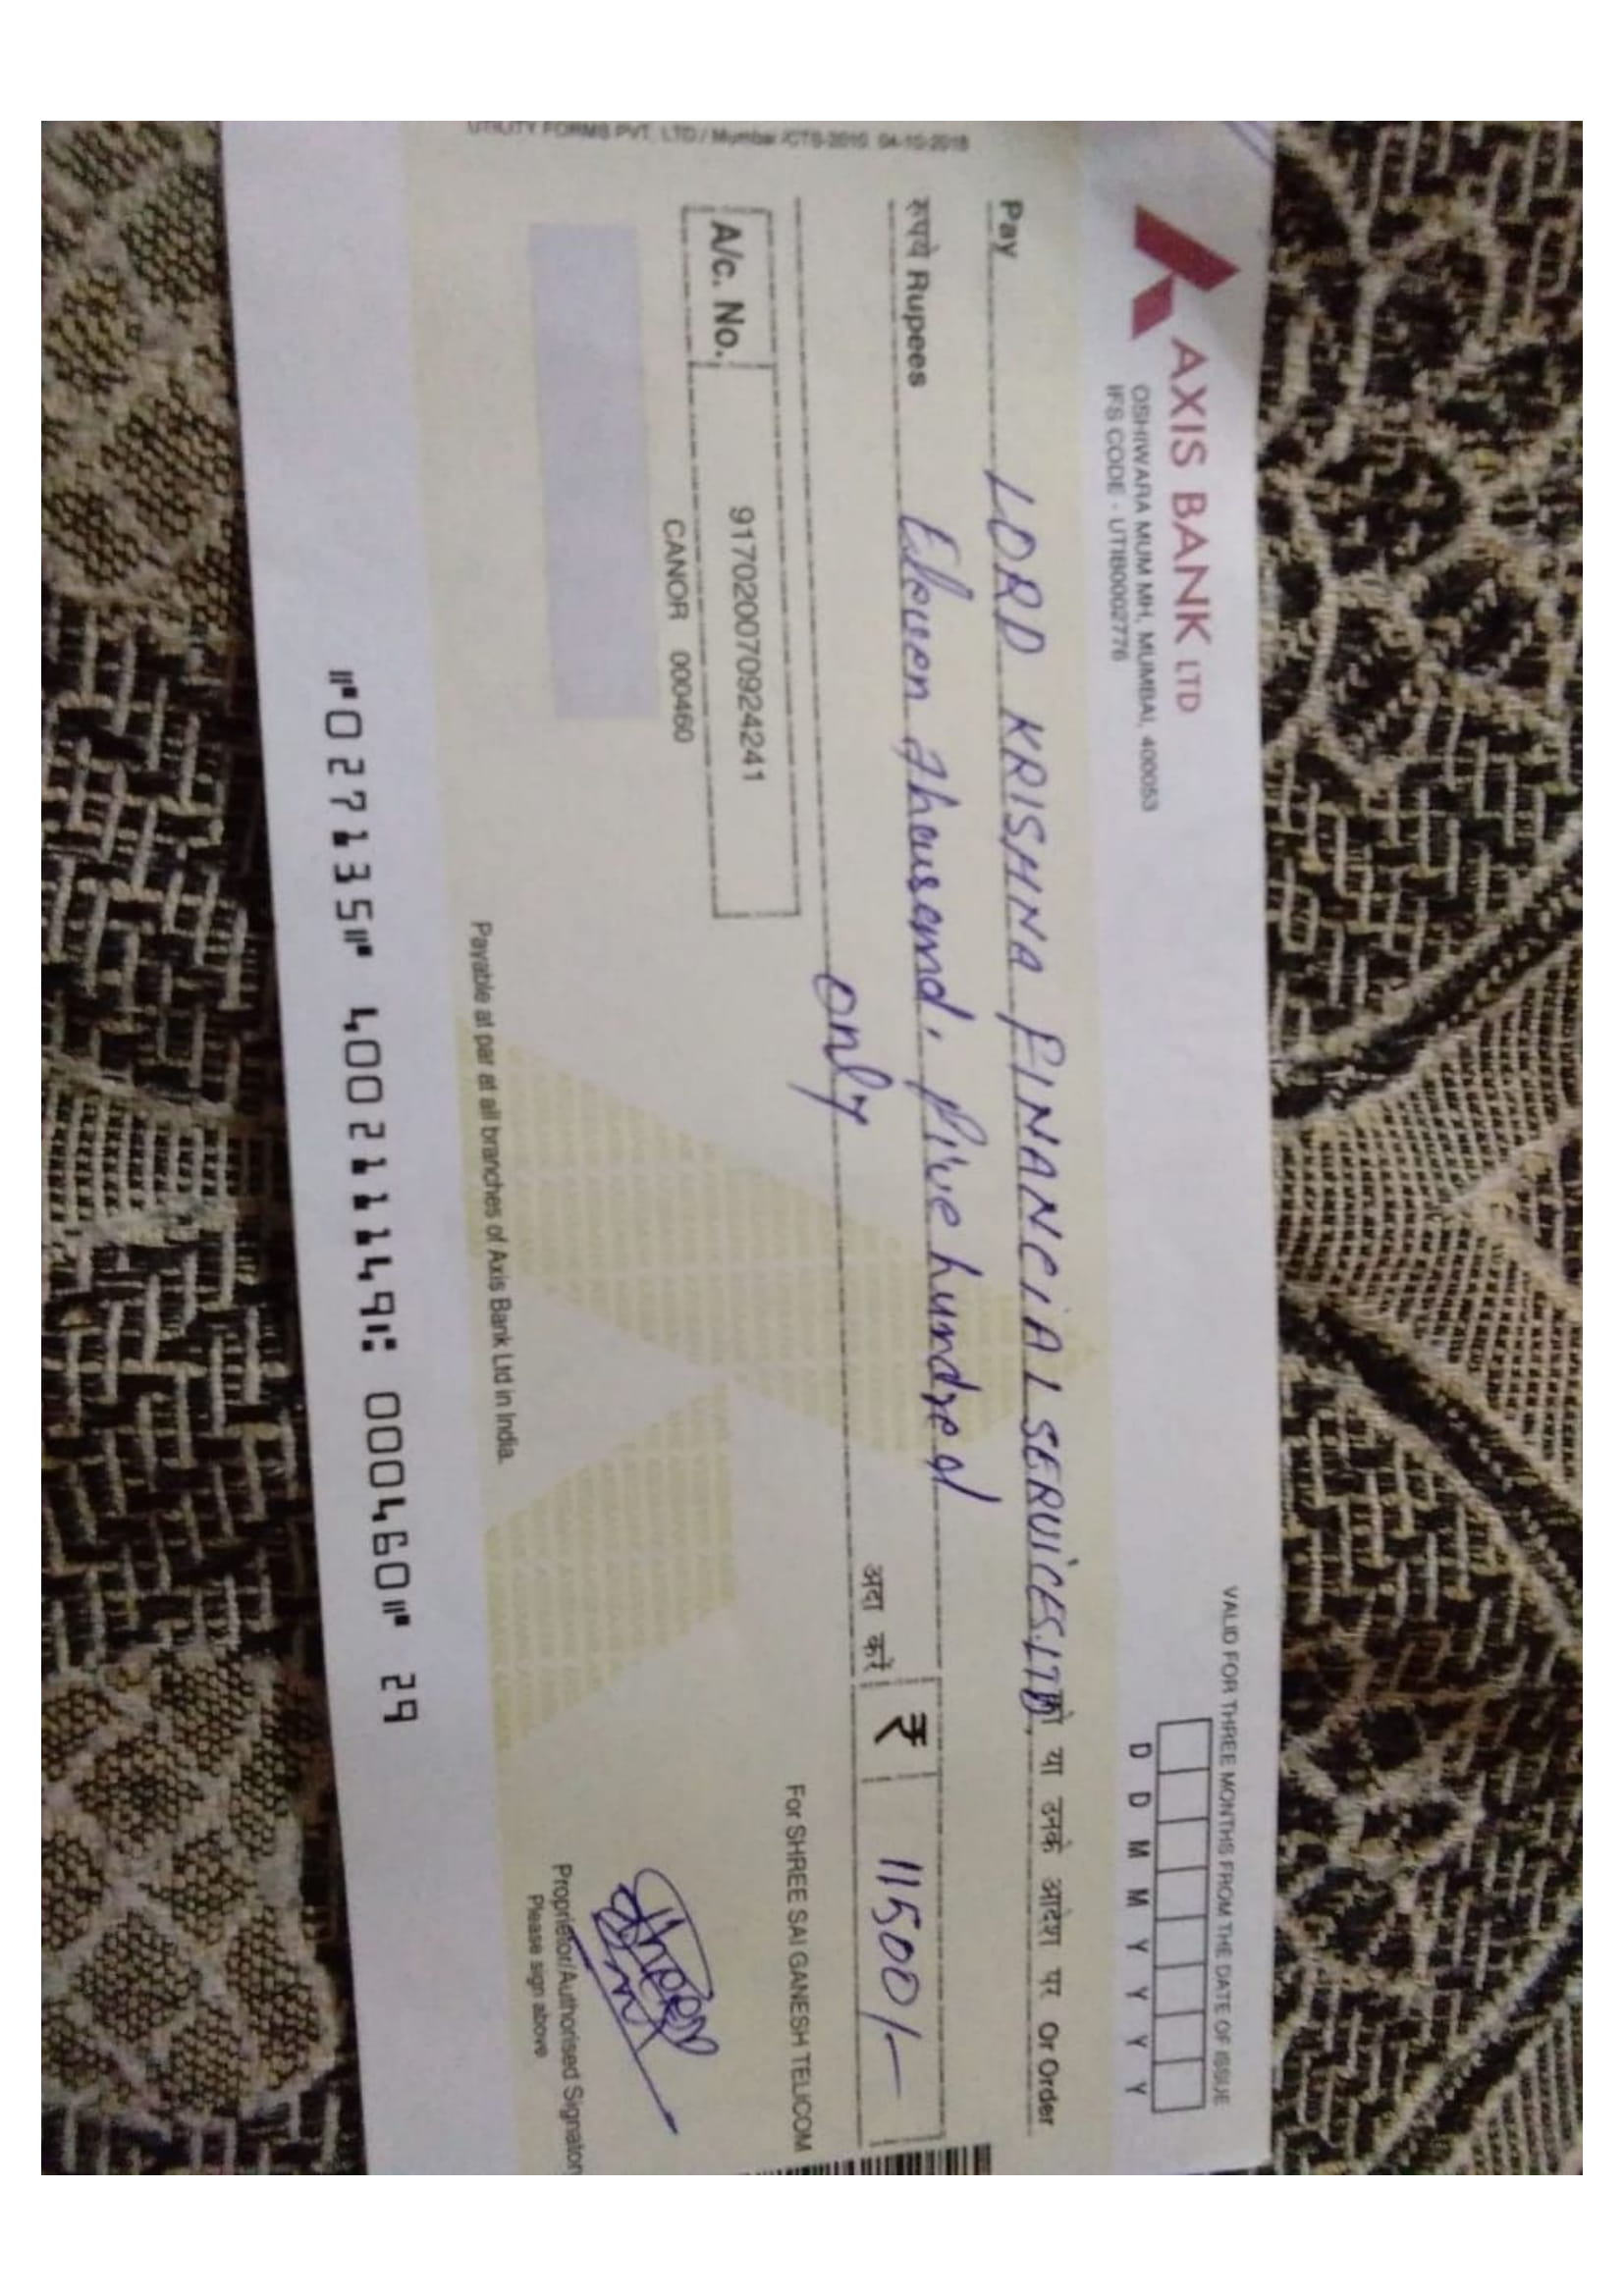 AXIS BANK LTD
OSHIWARA MUM MH, MUMBAI, 400053
IFS CODE - UTIB0002776
VALID FOR THREE MONTHS FROM THE DATE OF ISSUE
D D M M Y Y Y Y
Pay LORD KRISHNA FINANCIAL SERVICES.LTD. को या उनके आदेश पर Or Order
रुपये Rupees Eleven thousand, five hundred
only अदा करें ₹ 11500/-
A/c. No. 917020070924241
CANOR 000460
For SHREE SAI GANESH TELICOM
Proprietor/Authorised Signatory
Please sign above
Payable at par at all branches of Axis Bank Ltd in India.
UTILITY FORMS PVT. LTD / Mumbai /CTS-2010 04-10-2018
⑈027135⑈ 400211149⑆ 000460⑈ 29